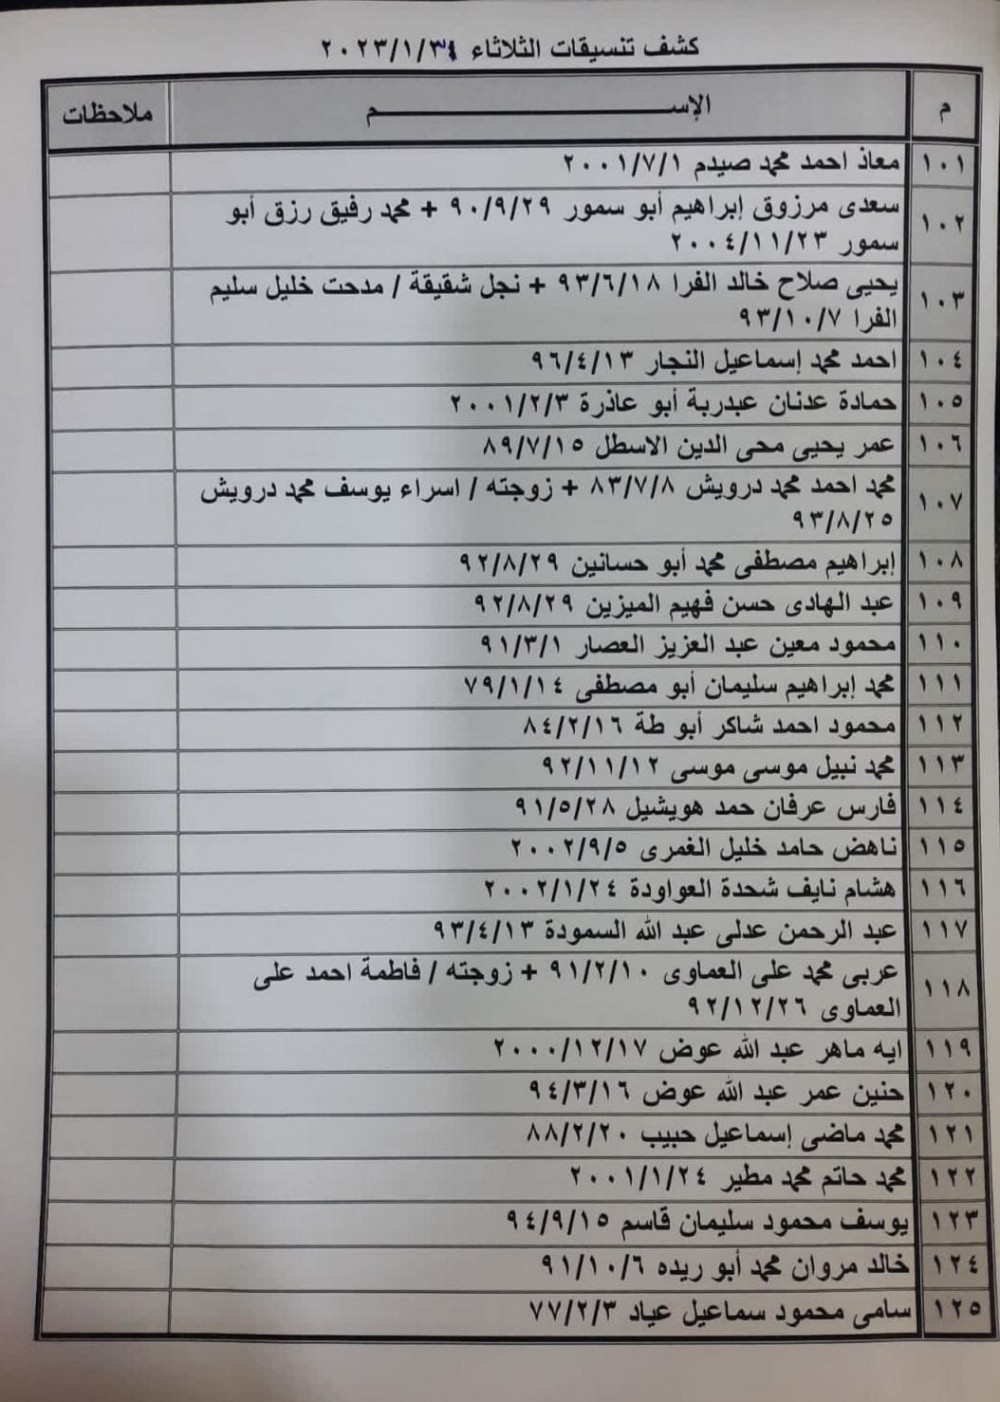 كشف تنسيقات الثلاثاء ٢٠٢٣/١/٣١
م الإســـــم ملاحظات
١٠١ معاذ احمد محمد صيدم ٢٠٠١/٧/١
١٠٢ سعدى مرزوق إبراهيم أبو سمور ٩٠/٩/٢٩ + محمد رفيق رزق أبو
سمور ٢٠٠٤/١١/٢٣
١٠٣ يحيى صلاح خالد الفرا ٩٣/٦/١٨ + نجل شقيقة / مدحت خليل سليم
الفرا ٩٣/١٠/٧
١٠٤ احمد محمد إسماعيل النجار ٩٦/٤/١٣
١٠٥ حمادة عدنان عبدربة أبو عاذرة ٢٠٠١/٢/٣
١٠٦ عمر يحيى محى الدين الاسطل ٨٩/٧/١٥
١٠٧ محمد احمد محمد درويش ٨٣/٧/٨ + زوجته / اسراء يوسف محمد درويش
٩٣/٨/٢٥
١٠٨ إبراهيم مصطفى محمد أبو حسانين ٩٢/٨/٢٩
١٠٩ عبد الهادى حسن فهيم الميزين ٩٢/٨/٢٩
١١٠ محمود معين عبد العزيز العصار ٩١/٣/١
١١١ محمد إبراهيم سليمان أبو مصطفى ٧٩/١/١٤
١١٢ محمود احمد شاكر أبو طة ٨٤/٢/١٦
١١٣ محمد نبيل موسى موسى ٩٢/١١/١٢
١١٤ فارس عرفان حمد هويشيل ٩١/٥/٢٨
١١٥ ناهض حامد خليل الغمرى ٢٠٠٢/٩/٥
١١٦ هشام نايف شحدة العواودة ٢٠٠٢/١/٢٤
١١٧ عبد الرحمن عدلى عبد الله السمودة ٩٣/٤/١٣
١١٨ عربى محمد على العماوى ٩١/٢/١٠ + زوجته / فاطمة احمد على
العماوى ٩٢/١٢/٢٦
١١٩ ايه ماهر عبد الله عوض ٢٠٠٠/١٢/١٧
١٢٠ حنين عمر عبد الله عوض ٩٤/٣/١٦
١٢١ محمد ماضى إسماعيل حبيب ٨٨/٢/٢٠
١٢٢ محمد حاتم محمد مطير ٢٠٠١/١/٢٤
١٢٣ يوسف محمود سليمان قاسم ٩٤/٩/١٥
١٢٤ خالد مروان محمد أبو ريده ٩١/١٠/٦
١٢٥ سامى محمود سماعيل عياد ٧٧/٢/٣